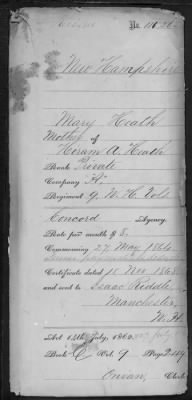 No.
New Hampshire
Mary Heath
Mother of
Hiram A. Heath
Rank Private
Company "K"
Regiment 9 N. H. Vols
Concord Agency.
Rate per month $ 8.
Commencing 27 May 1864
Certificate dated 18 Nov 1865
and sent to Isaac Riddle
Manchester,
N. H
Act 14th July, 1862
Book C Vol. 9 Page
Clerk